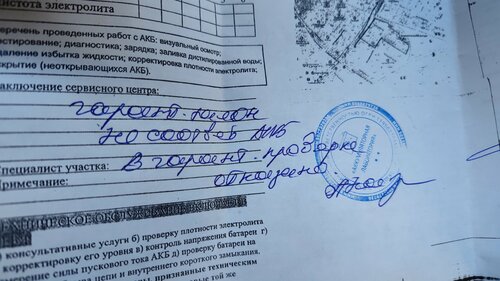 истота электролита
еречень проведенных работ с АКБ: визуальный осмотр;
естирование; диагностика; зарядка; заливка дистилированной воды;
даление избытка жидкости; корректировка плотности электролита;
скрытие (неоткрывающихся АКБ).
аключение сервисного центра:
гарант. талон
не соответ АКБ
Специалист участка: В гарант. проверке
Примечание: отказано
ТЕХНИЧЕСКОЕ ОБСЛУЖИВАНИЕ
) консультативные услуги б) проверку плотности электролита
корректировку его уровня в) контроль напряжения батареи г)
мерение силы пускового тока АКБ д) проверку батареи на
цепи и внутреннего короткого замыкания.
признанные техническим